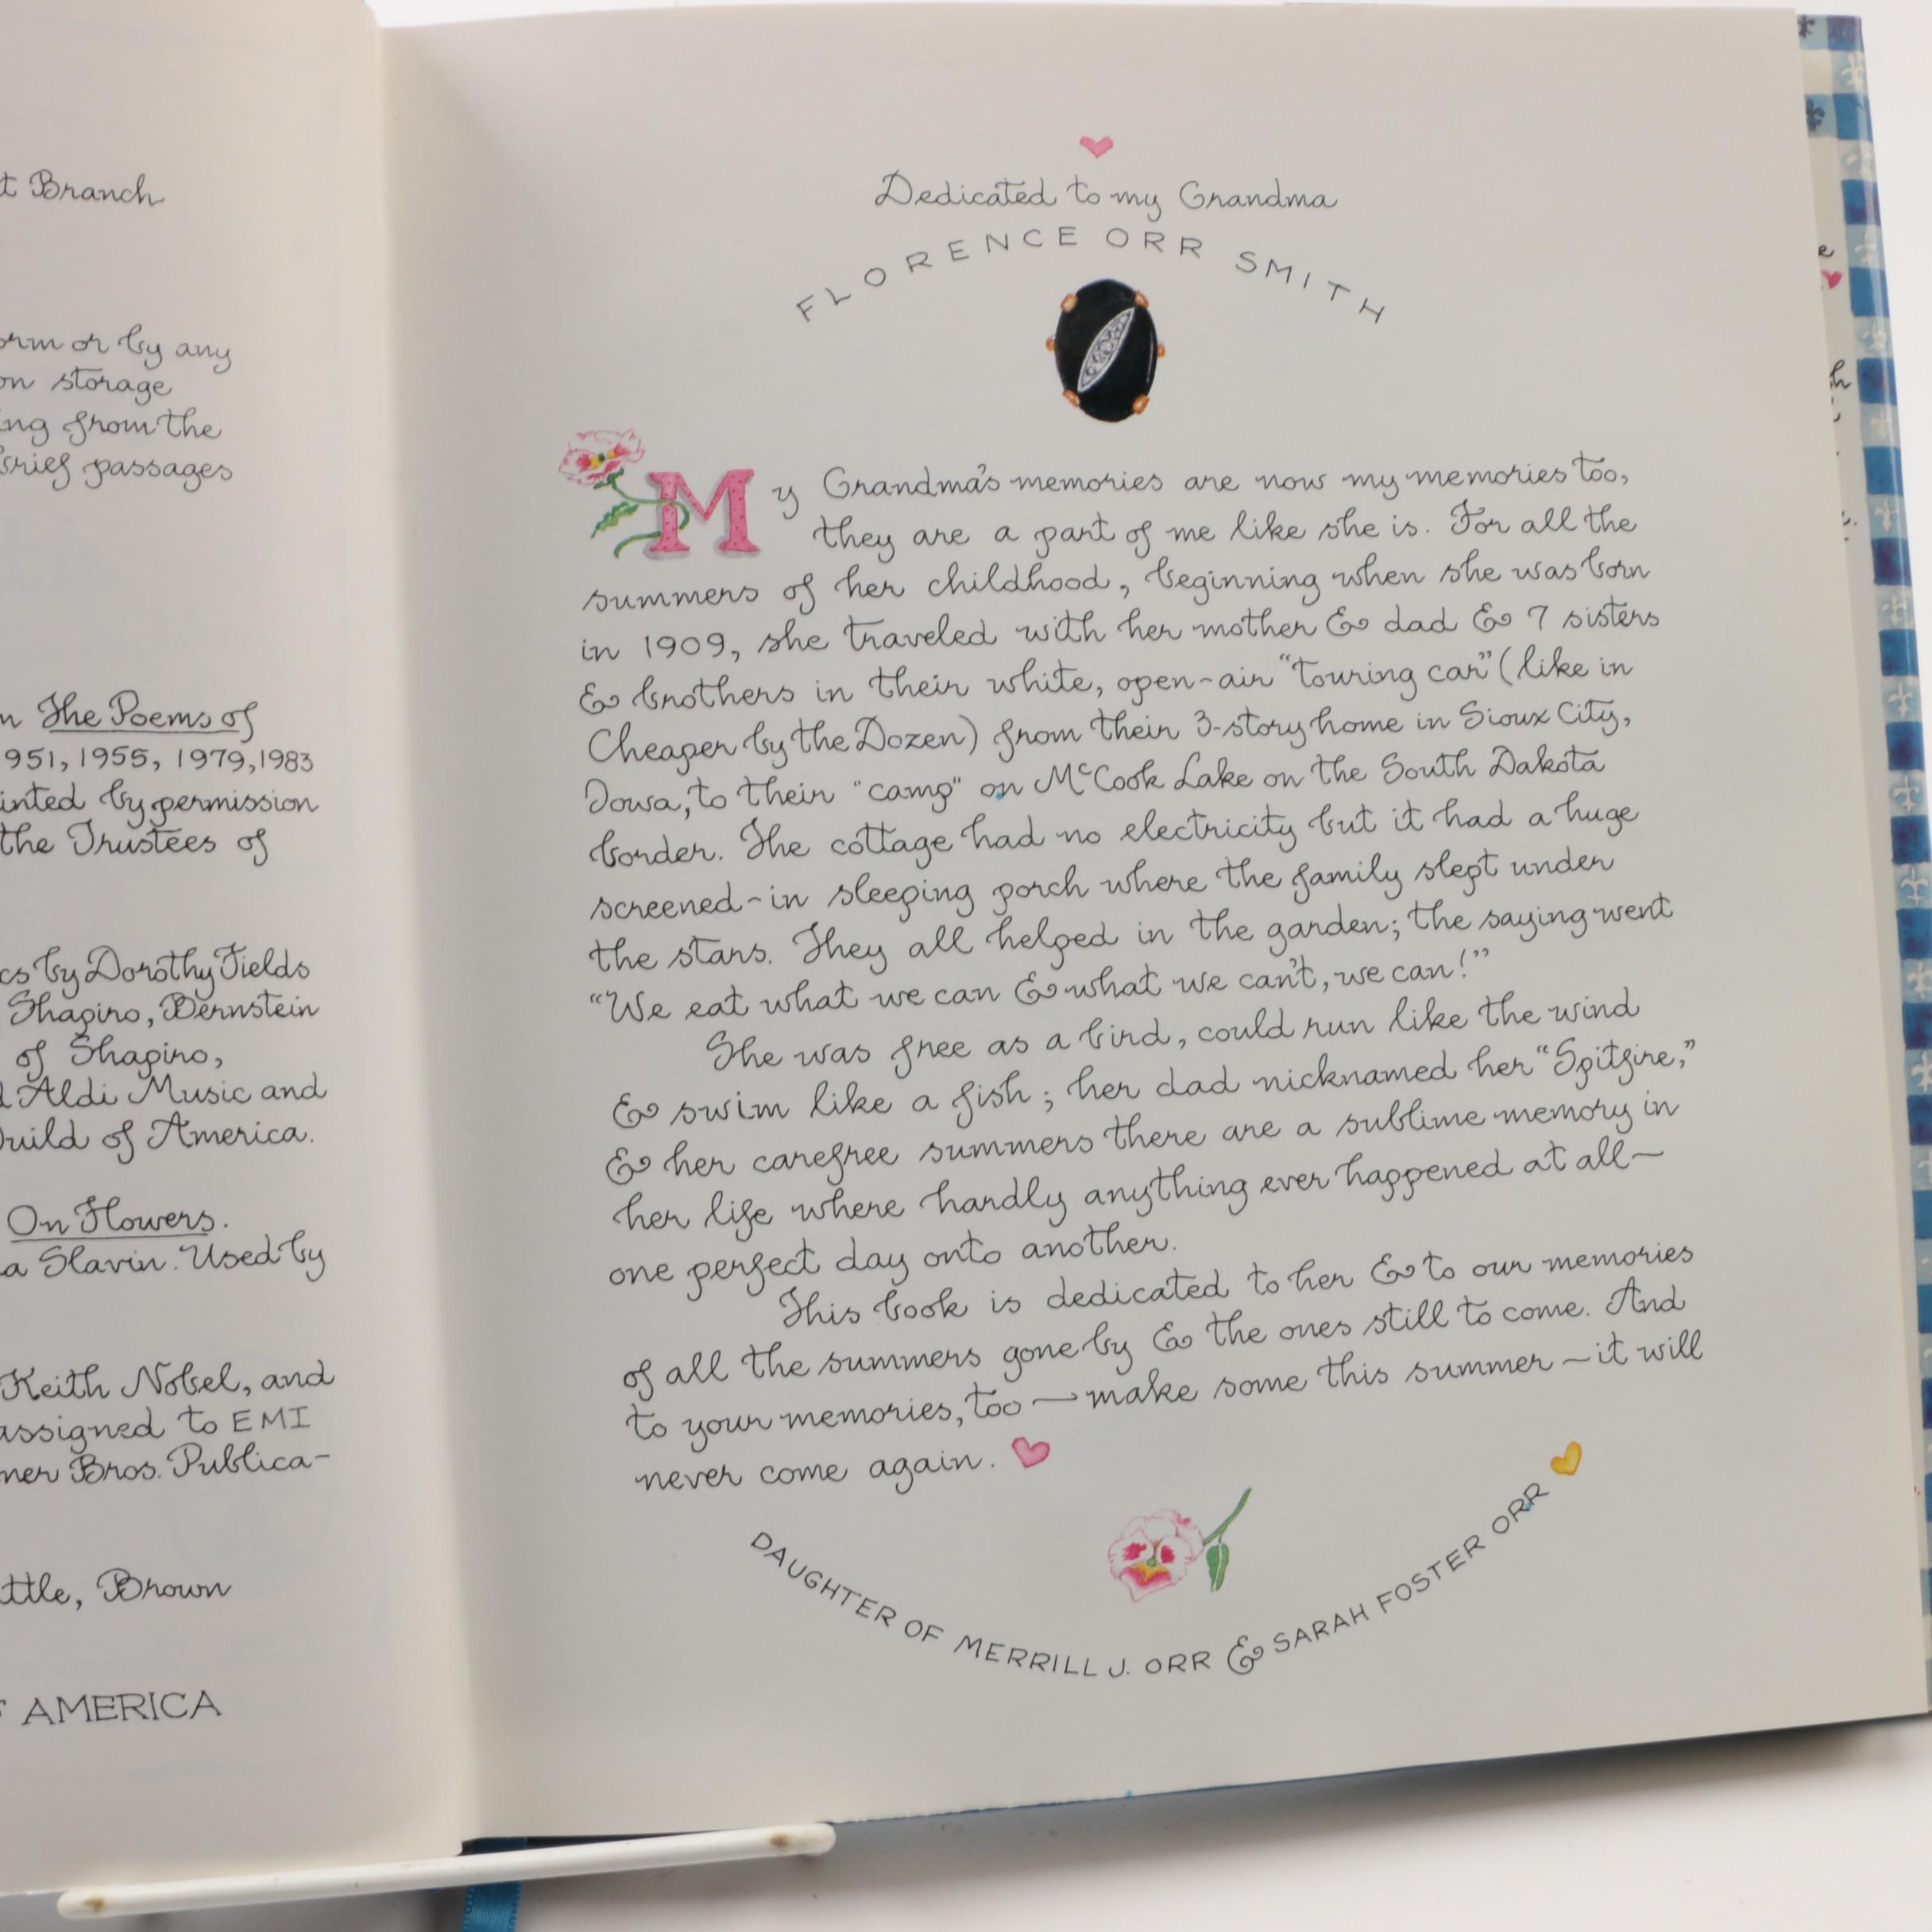 t Branch
orm or by any
on storage
ing from the
brief passages
n The Poems of
951, 1955, 1979, 1983
inted by permission
the Trustees of
cs by Dorothy Fields
Shapiro, Bernstein
of Shapiro,
d Aldi Music and
Guild of America.
On Flowers.
a Slavin. Used by
Keith Nobel, and
assigned to EMI
ner Bros. Publica-
ttle, Brown
F AMERICA
Dedicated to my Grandma
FLORENCE ORR SMITH
My Grandma's memories are now my memories too,
they are a part of me like she is. For all the
summers of her childhood, beginning when she was born
in 1909, she traveled with her mother & dad & 7 sisters
& brothers in their white, open-air "touring car" (like in
Cheaper by the Dozen) from their 3-story home in Sioux City,
Iowa, to their "camp" on McCook Lake on the South Dakota
border. The cottage had no electricity but it had a huge
screened-in sleeping porch where the family slept under
the stars. They all helped in the garden; the saying went
"We eat what we can & what we can't, we can!"
She was free as a bird, could run like the wind
& swim like a fish; her dad nicknamed her "Spitfire,"
& her carefree summers there are a sublime memory in
her life where hardly anything ever happened at all—
one perfect day onto another.
This book is dedicated to her & to our memories
of all the summers gone by & the ones still to come. And
to your memories, too — make some this summer — it will
never come again.
DAUGHTER OF MERRILL J. ORR & SARAH FOSTER ORR